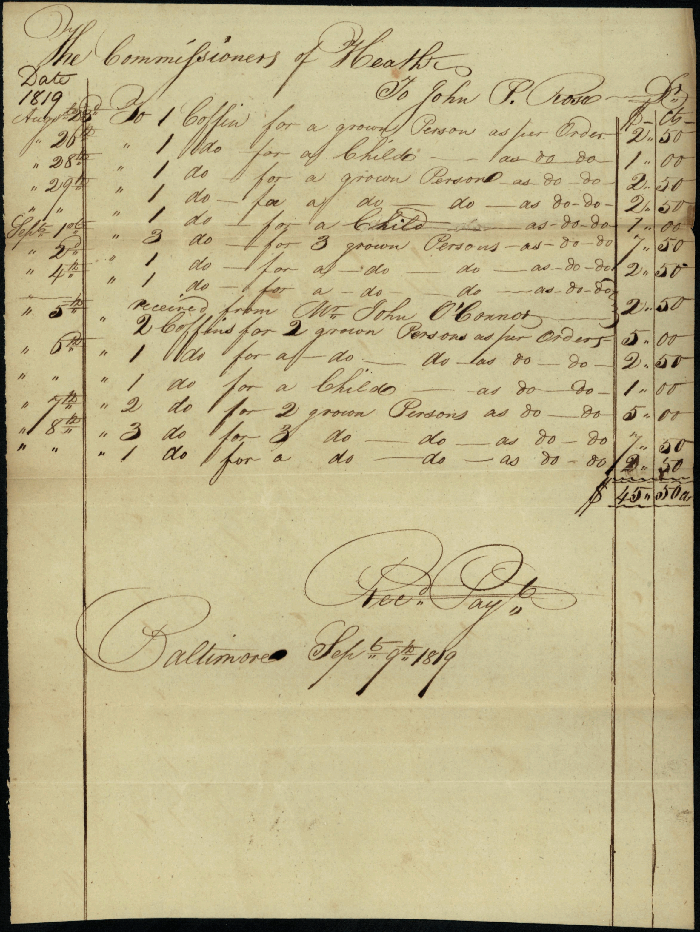 The Commissioners of Heath
To John P. Rose Dr.
Date
1819 $ Cts
Augt 23d To 1 Coffin for a grown Person as per Order 2.. 50
" 26th " 1 do for a Child — as do — do — 1.. 00
" 28th " 1 do — for a grown Person — as — do — do — 2.. 50
" 29th " 1 do — for a do — do — as — do — do — 2.. 50
" " " 1 do — for a Child — as — do — do 1.. 00
Septr 1st " 3 do — for 3 grown Persons — as — do — 7.. 50
" 2d " 1 do — for a — do — do — as — do — do 2.. 50
" 4th " 1 do — for a — do — do — as — do — do
received from Mr John O'Connor 2.. 50
" 5th " 2 Coffins for 2 grown Persons as per Orders 5.. 00
" 6th " 1 do for a — do — do as do — do 2.. 50
" " " 1 do for a Child — as do — do 1.. 00
" 7th " 2 do for 2 grown Persons as do — do 5.. 00
" 8th " 3 do for 3 do — do — as do — do 7.. 50
" " " 1 do for a do — do — as do — do 2.. 50
$ 45.. 50
Recd. Payt
Baltimore Sept 9th 1819